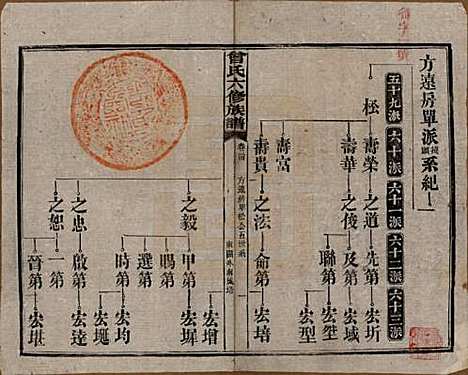 方遠房單派系紀一
五十九派 六十派 六十一派 六十二派 六十三派
松
壽榮 之道 先第 宏圻
壽華 之俊 及第 宏域
聯第 宏垤
宏型
壽富
壽貴 之法 命第 宏培
曾氏六修族譜
卷首
一
之毅 甲第 宏增
宏墀
賜第
選第
時第 宏均
之忠 啟第 宏達
之恕 一第 宏塏
晉第 宏堪